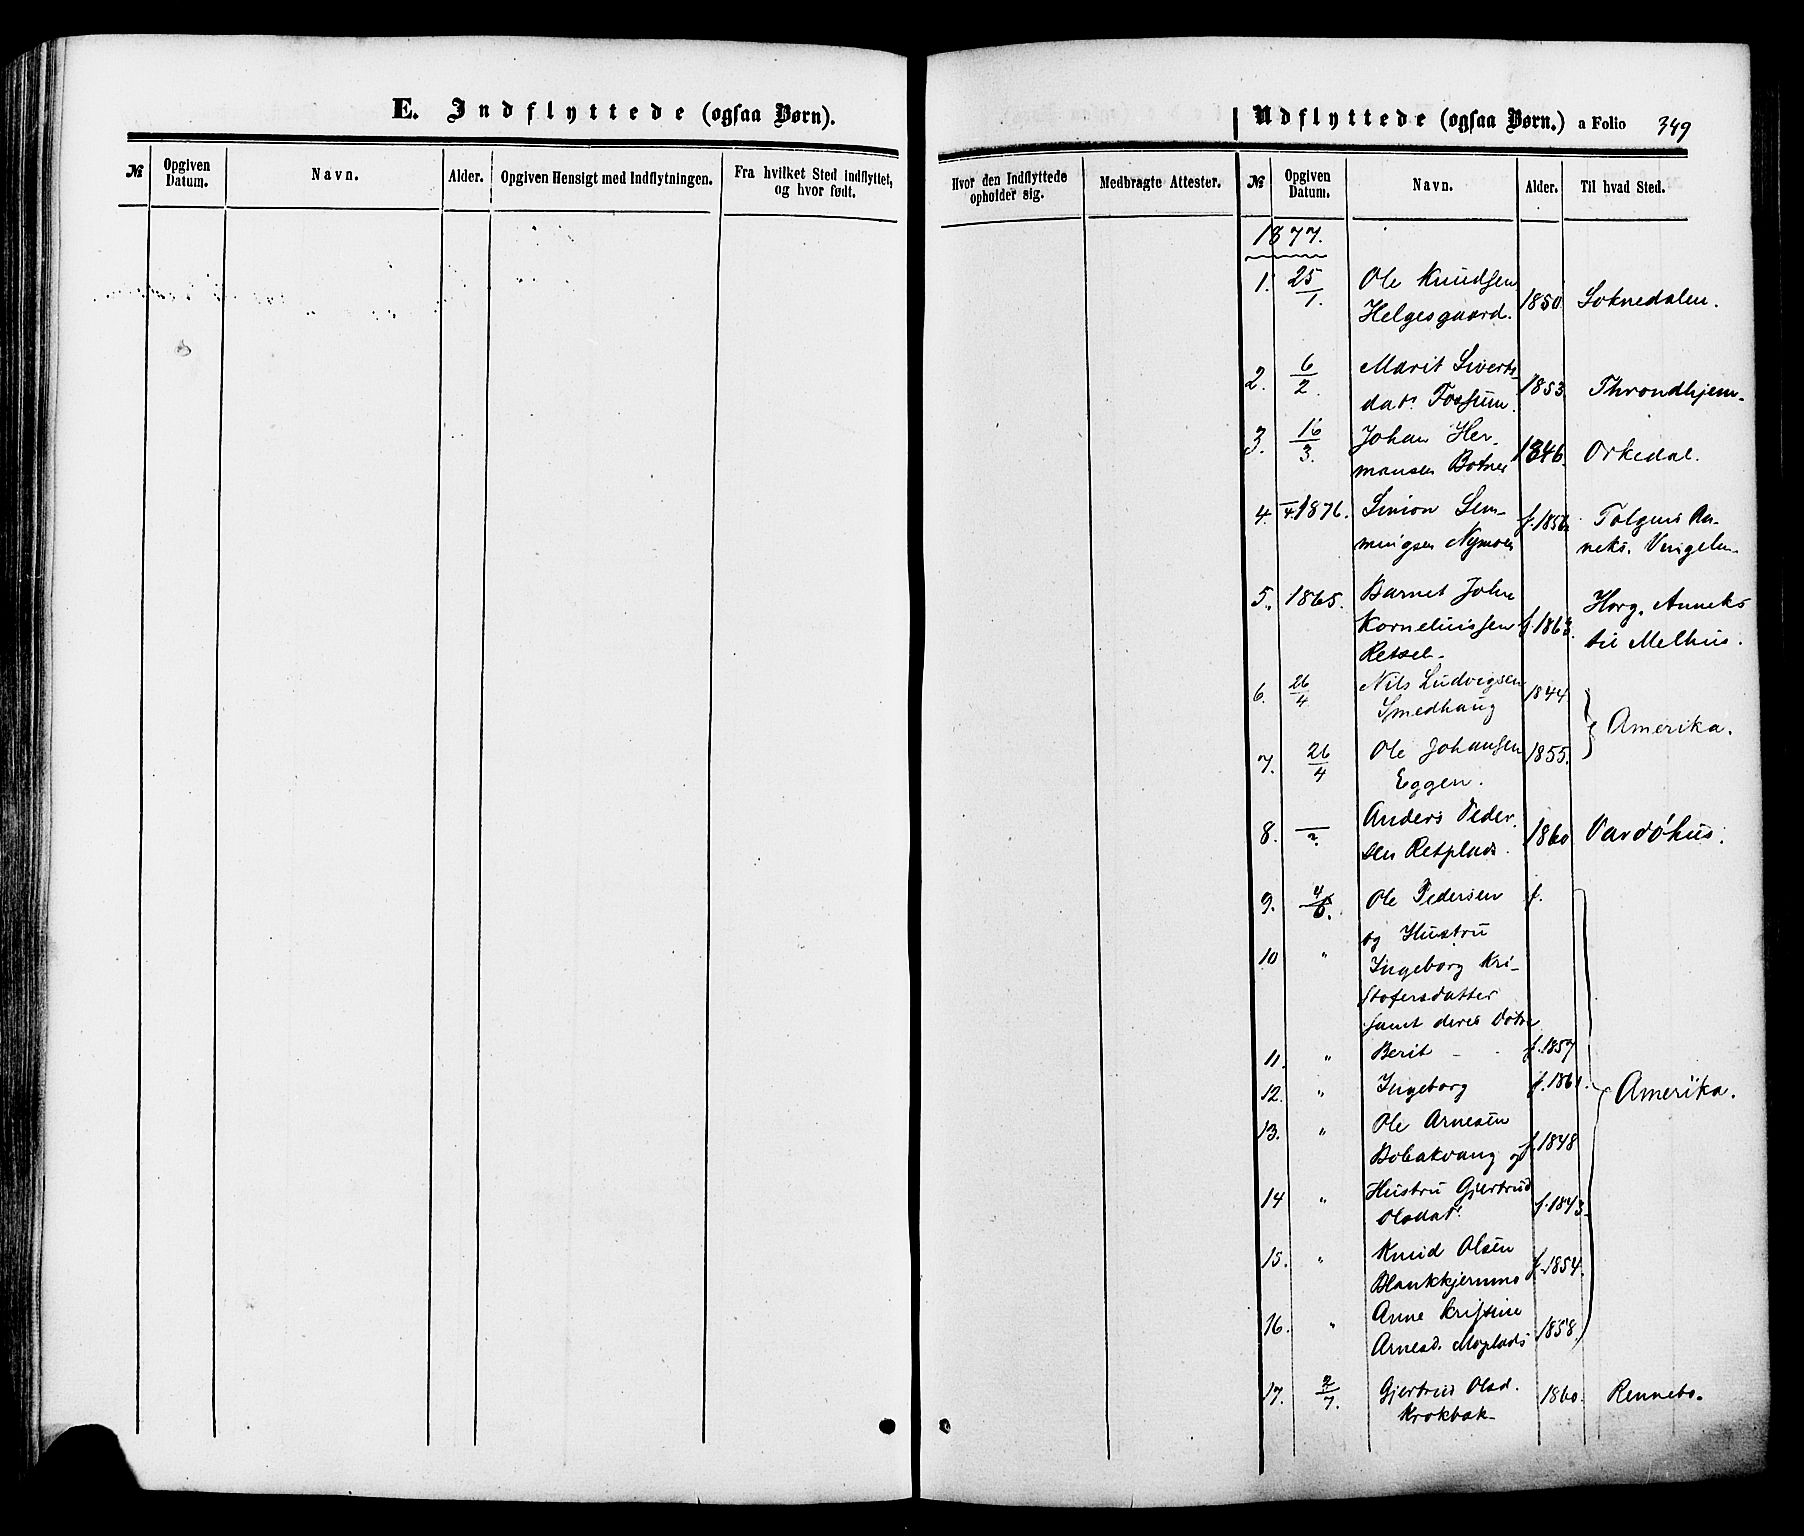 E. Indflyttede (ogsaa Børn).
№ Opgiven Datum. Navn. Alder. Opgiven Hensigt med Indflytningen. Fra hvilket Sted indflyttet, og hvor født.
Udflyttede (ogsaa Børn.) a Folio 349
Hvor den Indflyttede opholder sig. Medbragte Attester. № Opgiven Datum. Navn. Alder. Til hvad Sted.
1877.
1. 25/1. Ole Knudsen
Helgesgaard. 1850 Soknedalen.
2. 6/2. Marit Siverts-
dat. Fossum. 1853 Throndhjem.
3. 16/3. Johan Her-
mansen Botner 1846. Orkedal.
4. 1876. Simon Sem-
mingsen Nymoen f. 1856. Tolgens An-
neks. Vingelen
5. 1865. Barnet John
Korneliussen f. 1863. Horg. Anneks
til Melhus.
6. 26/4 Nils Ludvigsen
Smedhaug 1844
7. 26/4 Ole Johansen
Eggen. 1855. Amerika.
8. Anders Peder-
sen Retplads. 1860 Vardöhus.
9. Ole Pedersen f.
og Hustru
10 " Ingeborg Kri-
stofersdatter
samt deres
11. " Berit f. 1857
12. " Ingeborg f. 1861. Amerika.
13. " Ole Arnesen
og f. 1848
14 " Hustru Gjertrud
Olsdat. f. 1843.
15. " Knud Olsen
f. 1854.
16. " Anne Kristine
Arnesd. Moplads 1858.
17. 2/7. Gjertrud Olsd.
Krokbæk 1860. Rennebo.